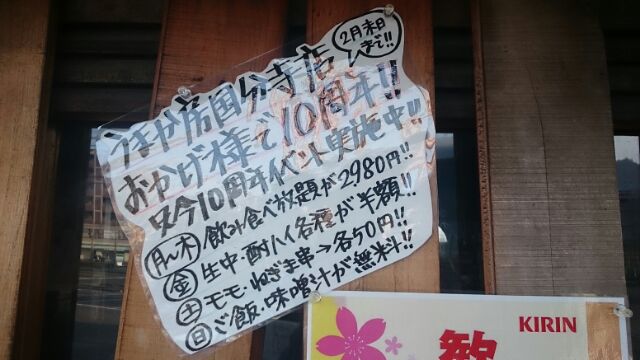 2月末日
まで!!
うまか房国分寺店
おかげ様で10周年!!
只今10周年イベント実施中!!
月~木 飲み食べ放題が2980円!!
金 生中・酎ハイ各種が半額!!
土 モモ・ねぎま串→各50円!!
日 ご飯・味噌汁が無料!!
KIRIN
歓